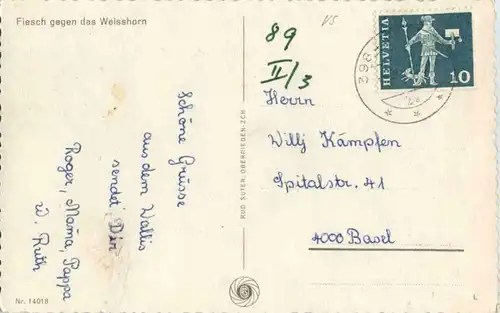 Fiesch gegen das Weisshorn
Schöne Grüsse
aus dem Wallis
sendet Dir
Roger, Mama, Pappa
u. Ruth
Nr. 14018
RUD. SUTER, OBERRIEDEN-ZCH
89
II/3
VS
HELVETIA
10
398
Herrn
Willj Kämpfen
Spitalstr. 41
4000 Basel
L